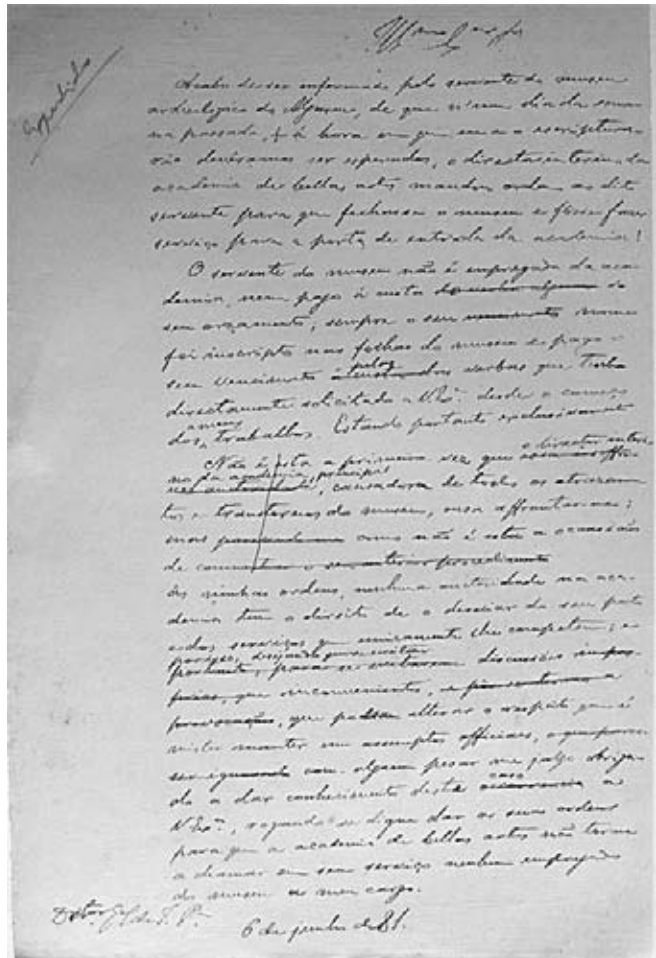 Expedido
Acabo de ser informado pelo servente do museu
archeologico do Algarve, de que n'um dia da sema
na passada, á hora em que eu e o escriptura
rio deviamos ser esperados, o director interino da
academia de bellas artes mandou ordem ao dito
servente para que fechasse o museu e fosse fazer
serviço para a porta de entrada da academia!
O servente do museu não é empregado da aca
demia, nem pago á custa do seu
orçamento; sempre o seu nome
foi inscripto nas folhas do museu e pago o
seu vencimento pelas verbas que tenho
directamente solicitado a V. Exª. desde o começo
dos meus trabalhos. Estando portanto exclusivamente
o director interi
Não é esta a primeira vez que
no da academia, principal
causadora de todos os atrazos
e transtornos do museu, ousa affrontar-me;
mas como não é esta a occasião
de
ás minhas ordens, nenhuma auctoridade na aca
demia tem o direito de o desviar do seu posto
e dos serviços que unicamente lhe competem; e
porisso, desejando evitar
discussões
que inconvenientes,
que possam alterar o respeito que é
mister manter em assumptos officiaes,
com algum pesar me julgo obriga
do a dar conhecimento deste caso a
V. Exª., rogando se digne dar as suas ordens
para que a academia de bellas artes não torne
a chamar em seu serviço nenhum empregado
do museu a meu cargo.
6 de junho de 81.